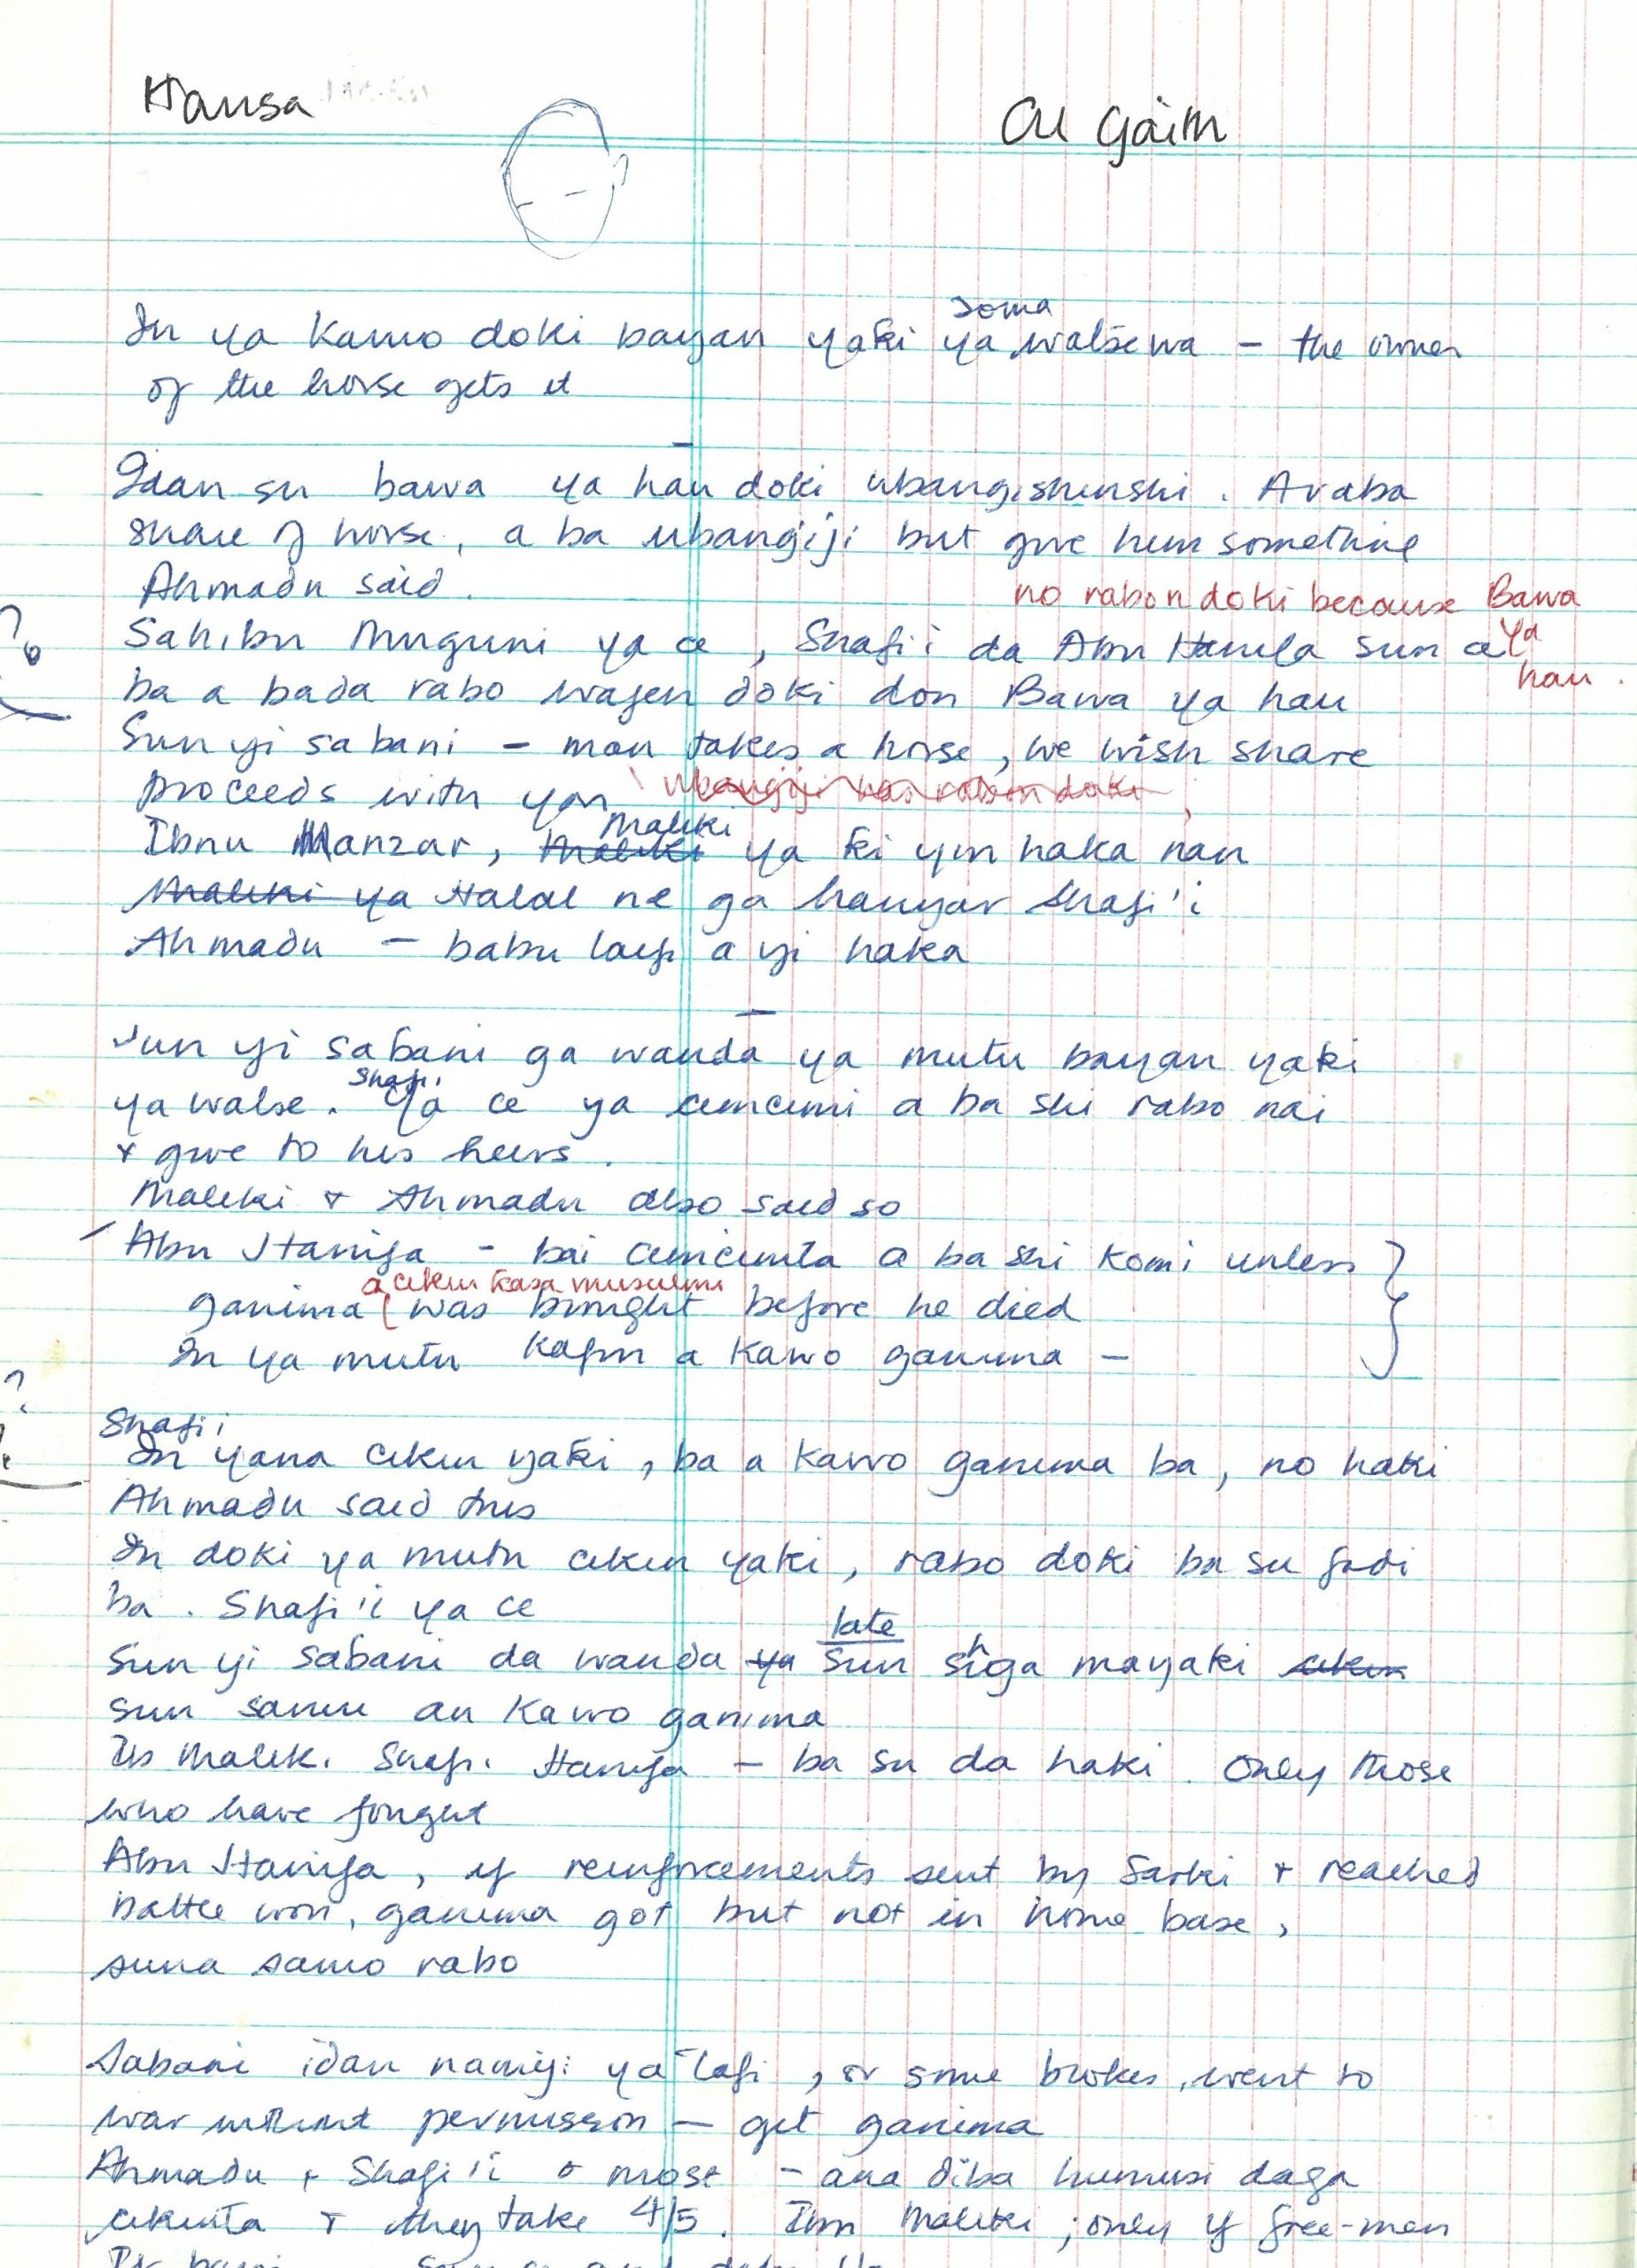 Hausa
Al Gaith
soma
In ya kawo doki bayan yaƙi ya watsewa – the owner
of the horse gets it
Idan su bawa ya hau doki ubangishinshi. A raba
share of horse, a ba ubangiji but give him something
Ahmadu said.
no rabon doki because Bawa
ya
hau.
Sahibu Muguni ya ce, Shafi'i da Abu Hanifa sun ce
ba a bada rabo wajen doki don Bawa ya hau
Sun yi sabani – man takes a horse, we wish share
proceeds with you
ubangiji has rabon doki
Maliki
Ibnu Manzar, Maliki ya ƙi yin haka nan
Maliki ya Halal ne ga hanyar Shafi'i
Ahmadu – babu laifi a yi haka
Sun yi saɓani ga wanda ya mutu bayan yaƙi
Shafi'i
ya watse. Ya ce ya cimcimi a ba shi rabo nai
+ give to his heirs.
Maliki + Ahmadu also said so
Abu Hanifa – bai cimcimta a ba shi komi unless
a cikin ƙasa musulmi
ganima was brought before he died
In ya mutu kafin a kawo ganima –
Shafi'i
In yana cikin yaƙi, ba a kawo ganima ba, no haki
Ahmadu said this
In doki ya mutu cikin yaƙi, rabo doki ba su fadi
ba. Shafi'i ya ce
late
Sun yi saɓani da wanda ya sun shiga mayaƙi cikin
sun samu an kawo ganima
Maliki Shafi'i Hanifa – ba su da haki. Only those
who have fought
Abu Hanifa, if reinforcements sent by Sarki + reached
battle won, ganima got but not in home base,
suna samo rabo
Sabani idan namiji ya tafi, or some broke, went to
war without permission – get ganima
Ahmadu + Shafi'i + most – ana diba humusi daga
cikinta + they take 4/5. Maliki; only if free-men